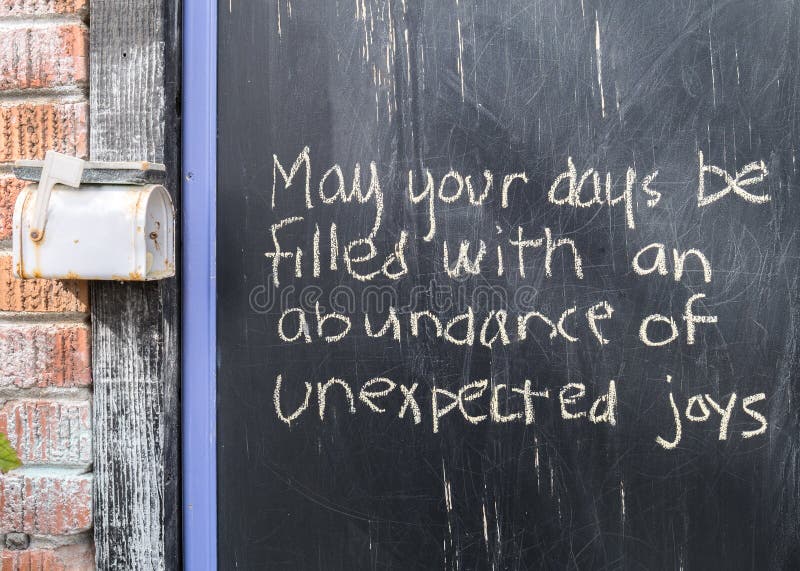 May your days be
filled with an
abundance of
unexpected joys
dreamstime